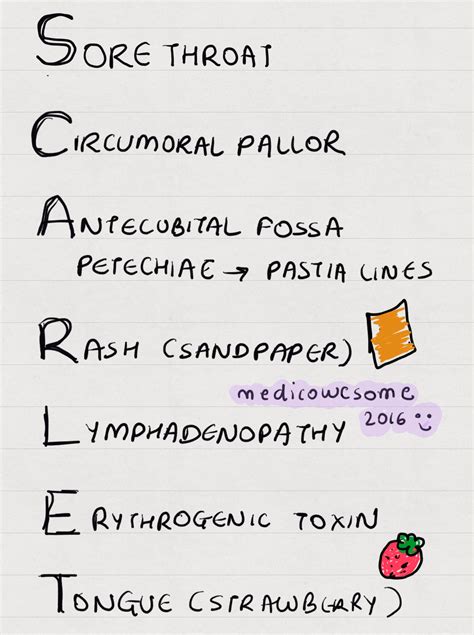 SORE THROAT
CIRCUMORAL PALLOR
ANTECUBITAL FOSSA
PETECHIAE → PASTIA LINES
RASH (SANDPAPER)
medicowesome
2016
LYMPHADENOPATHY
ERYTHROGENIC TOXIN
TONGUE (STRAWBERRY)